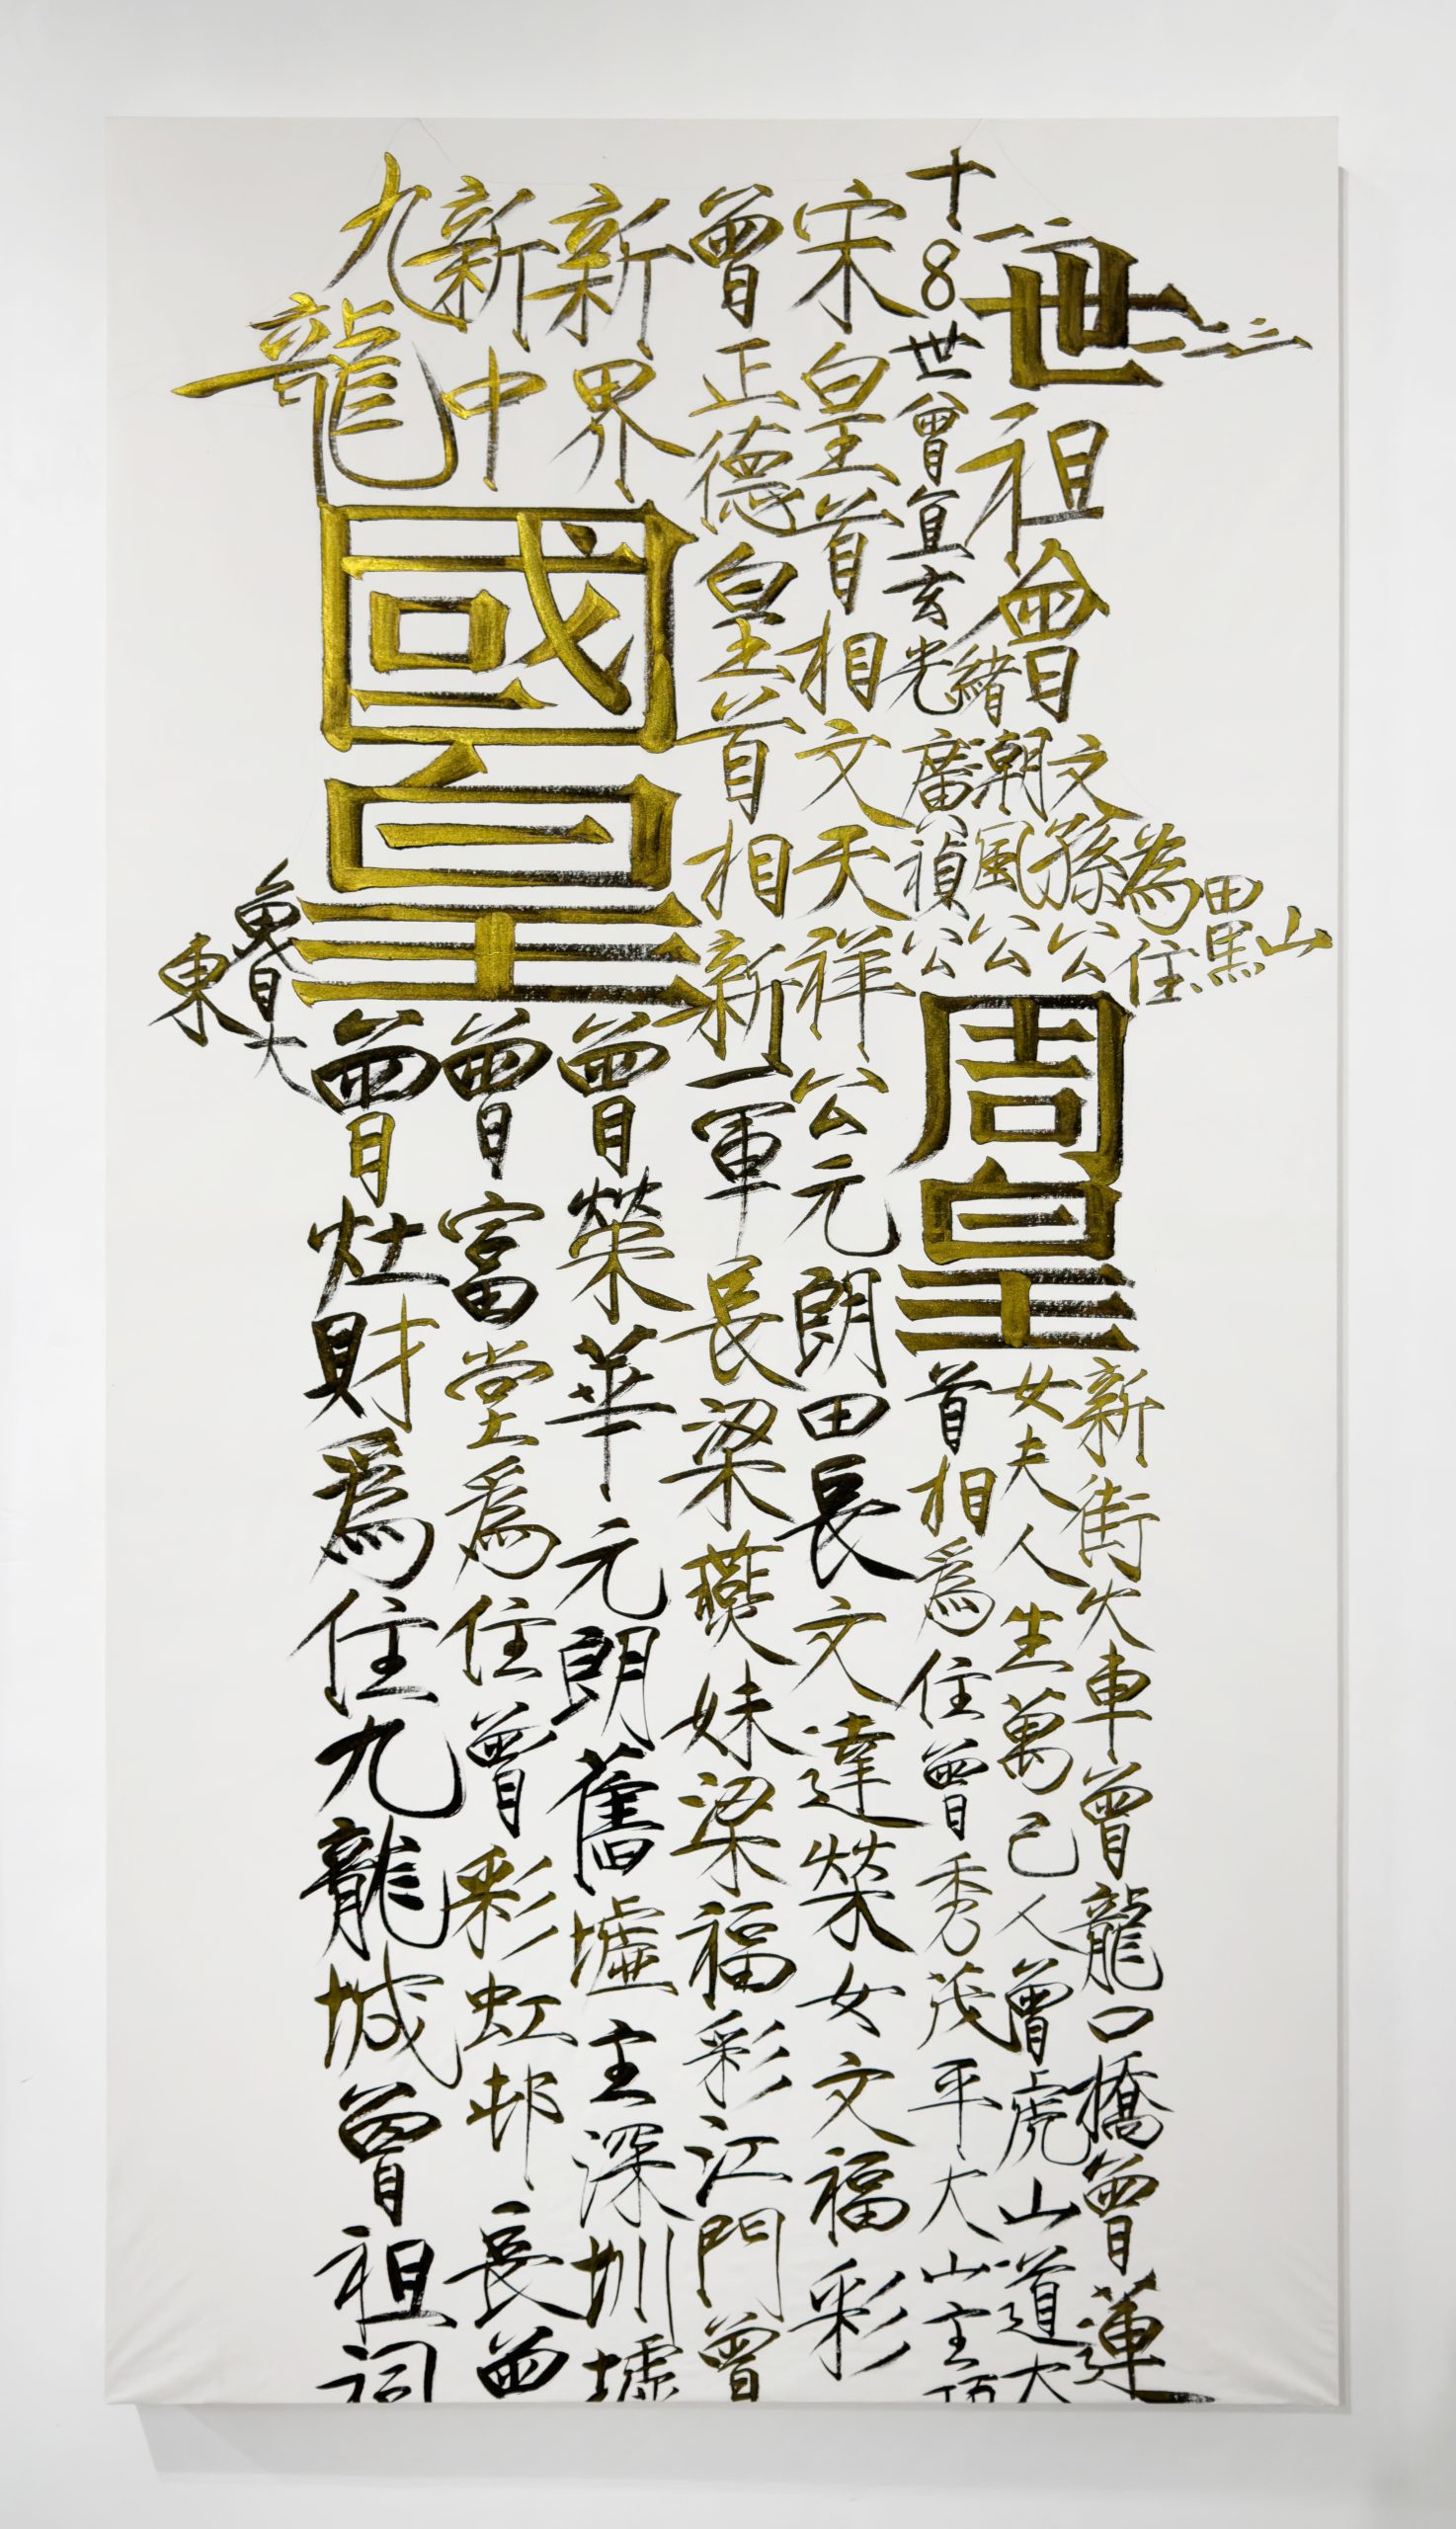 二世祖曾文孫公為住田黑山
二三
緒朝風公
十8世曾宜玄光廣禎公
周皇
新街火車曾龍口橋曾蓮
女夫人生萬己人曾虎山道大
首相為住曾秀茂平大山主
宋皇首相文天祥公元朗田長文達榮女文福彩
曾正德皇首相新一軍長梁燕妹梁福彩江門曾
新界
新中
九龍
國皇
曾榮華元朗舊墟主深圳墟
曾富堂爲住曾彩虹邨長曾
曾灶財爲住九龍城曾祖祠
東
大